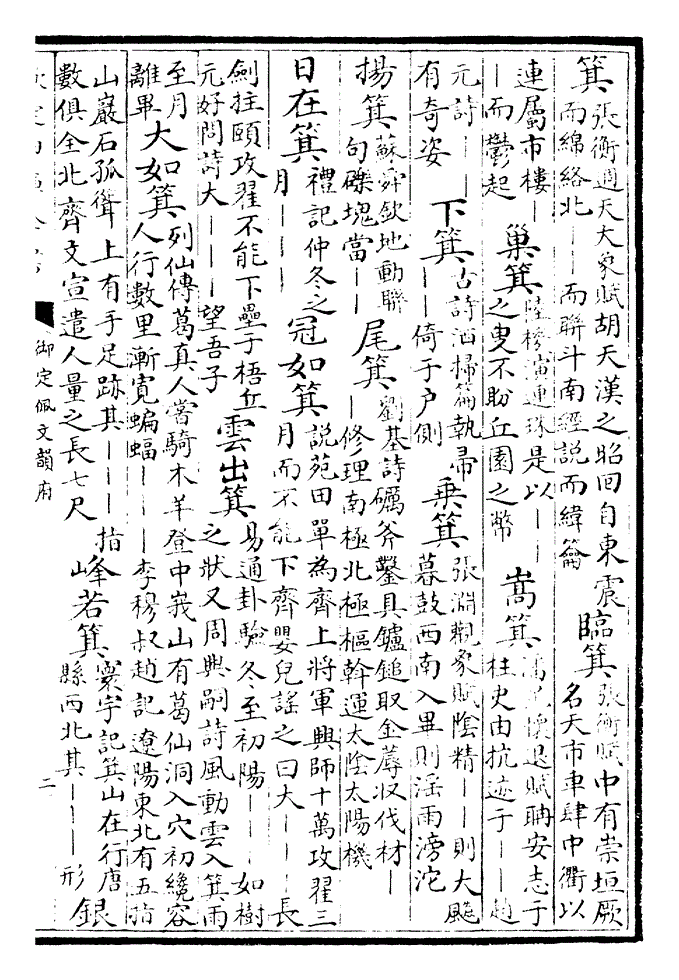 箕張衡週天大象賦胡天漢之昭回自東震而綿絡北｜而聯斗南經說而緯籥臨箕張衡賦中有崇垣厥名天市車肆中衢以
連屬市樓｜｜而鬱起巢箕陸機演連珠是以｜｜之叟不盼丘園之幣嵩箕潘尼懷退賦聃安志于柱史由抗迹于｜｜趙
元詩｜｜有奇姿下箕古詩洒掃篇執帚｜｜倚于户側乗箕張淵觀象賦陰精｜｜則大飈暮鼓西南入畢則滛雨滂沱
揚箕蘇舜欽地動聯句礫塊當｜｜尾箕劉基詩礪斧鑿具鑪鎚取金蓐收伐材｜｜修理南極北極樞幹運太陰太陽機
日在箕禮記仲冬之月｜｜｜冠如箕説苑田單為齊上將軍興師十萬攻翟三月而不能下齊嬰兒謡之曰大｜｜｜長
劍拄頤攻翟不能下壘于梧丘元好問詩大｜｜｜望吾子雲出箕易通卦驗冬至初陽｜｜｜如樹之狀又周興嗣詩風動雲入箕雨
至月離畢大如箕列仙傳葛真人嘗騎木羊登中峩山有葛仙洞入穴初纔容人行數里漸寛蝙蝠｜｜｜李穆叔趙記遼陽東北有五指
山巖石孤聳上有手足跡其｜｜｜指數俱全北齊文宣遣人量之長七尺峰若箕寰宇記箕山在行唐縣西北其｜｜｜形銀
御定佩文韻府
二